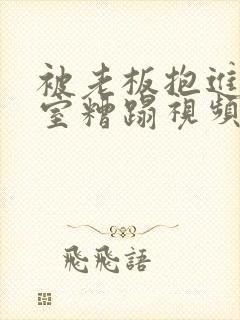 被老板抱進
室糟蹋視頻
飛飛語